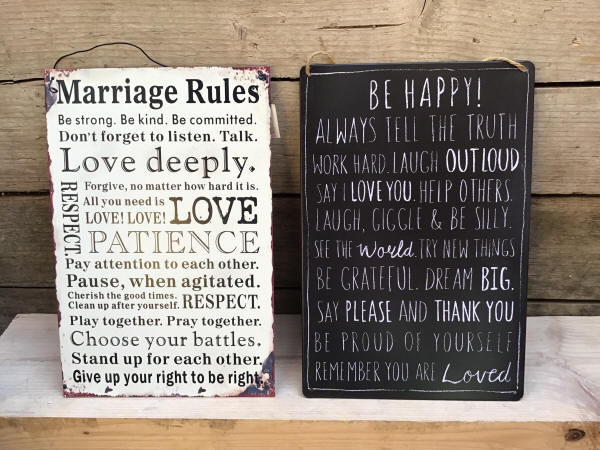 Marriage Rules
Be strong. Be kind. Be committed.
Don't forget to listen. Talk.
Love deeply.
RESPECT.
Forgive, no matter how hard it is.
All you need is
LOVE! LOVE!
LOVE
PATIENCE
Pay attention to each other.
Pause, when agitated.
Cherish the good times.
Clean up after yourself.
RESPECT.
Play together. Pray together.
Choose your battles.
Stand up for each other.
Give up your right to be right.
BE HAPPY!
ALWAYS TELL THE TRUTH
WORK HARD. LAUGH OUT LOUD
SAY I LOVE YOU. HELP OTHERS.
LAUGH, GIGGLE & BE SILLY.
SEE THE World. TRY NEW THINGS
BE GRATEFUL. DREAM BIG.
SAY PLEASE AND THANK YOU
BE PROUD OF YOURSELF
REMEMBER YOU ARE Loved